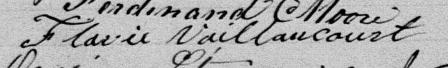 Ferdinand Moore
Flavie Vaillancourt